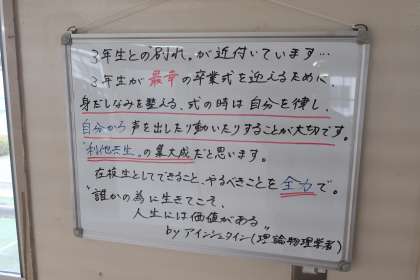 3年生との"別れ"が近付いています…
3年生が最幸の卒業式を迎えるために、
身だしなみを整える、式の時は自分を律し、
自分から声を出したり動いたりすることが大切です。
"利他共生"の集大成だと思います。
在校生としてできること、やるべきことを全力で。
"誰かの為に生きてこそ、
人生には価値がある"
by アインシュタイン(理論物理学者)